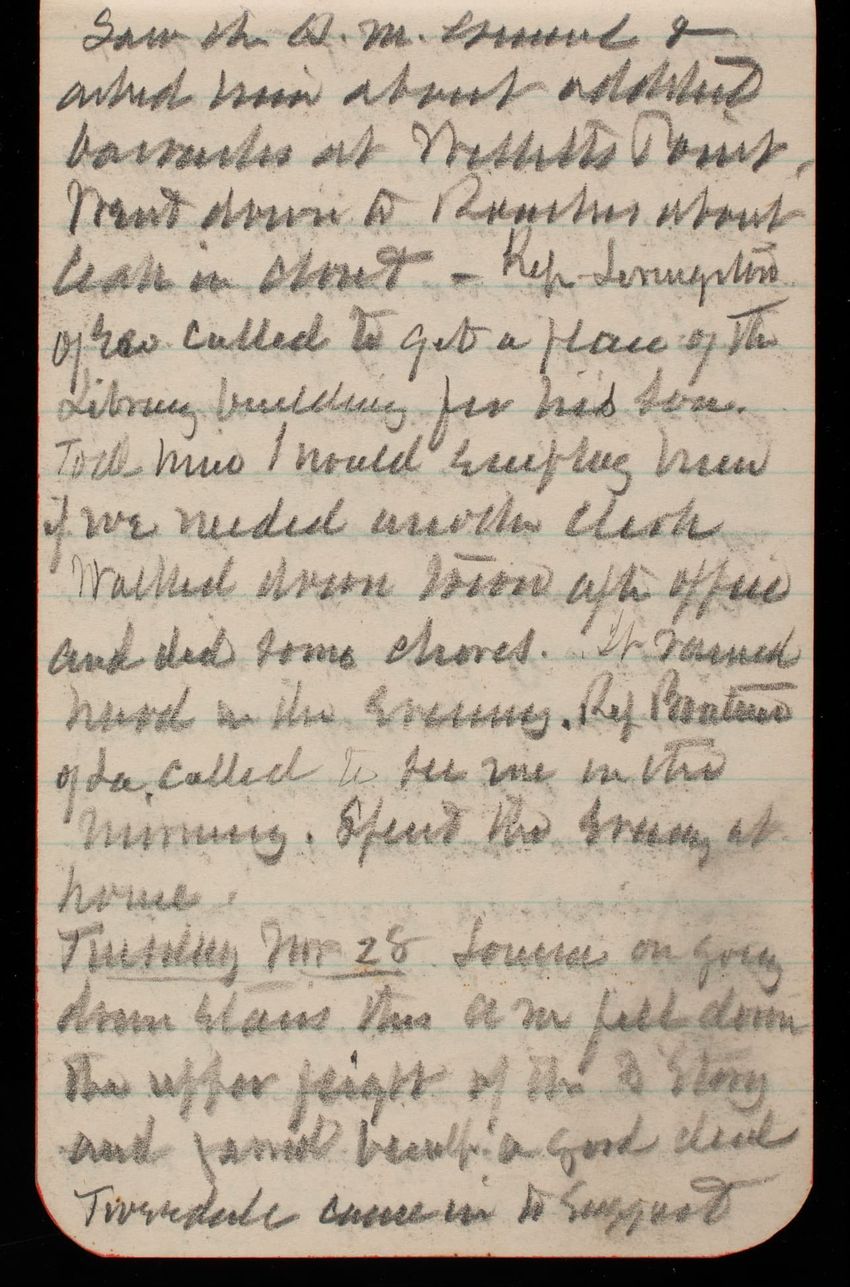 Saw the Q. M. General &
asked him about additional
barracks at Willetts Point,
Went down to Roaches about
leak in closet - Rep Livingston
of Geo called to get a place of the
Library building for his son.
Told him I would employ him
if we needed another clerk
Walked down town after office
and did some chores. It rained
hard in the evening. Rep Boatner
of La. called to see me in the
morning. Spent the evening at
home.
Tuesday Nov 28 Louisa on going
down stairs this a m fell down
the upper flight of the 3d Story
and herself a good deal
Tweedale came in to suggest